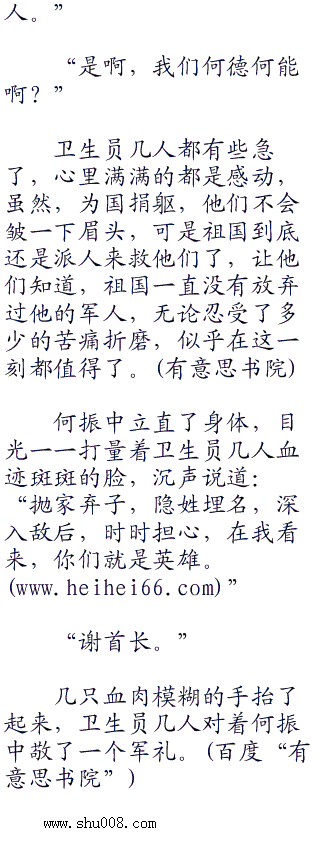 人。”
“是啊，我们何德何能
啊？”
卫生员几人都有些急
了，心里满满的都是感动，
虽然，为国捐躯，他们不会
皱一下眉头，可是祖国到底
还是派人来救他们了，让他
们知道，祖国一直没有放弃
过他的军人，无论忍受了多
少的苦痛折磨，似乎在这一
刻都值得了。(有意思书院)
何振中立直了身体，目
光一一打量着卫生员几人血
迹斑斑的脸，沉声说道：
“抛家弃子，隐姓埋名，深
入敌后，时时担心，在我看
来，你们就是英雄。
(www.heihei66.com)”
“谢首长。”
几只血肉模糊的手抬了
起来，卫生员几人对着何振
中敬了一个军礼。(百度“有
意思书院”)
www.shu008.com